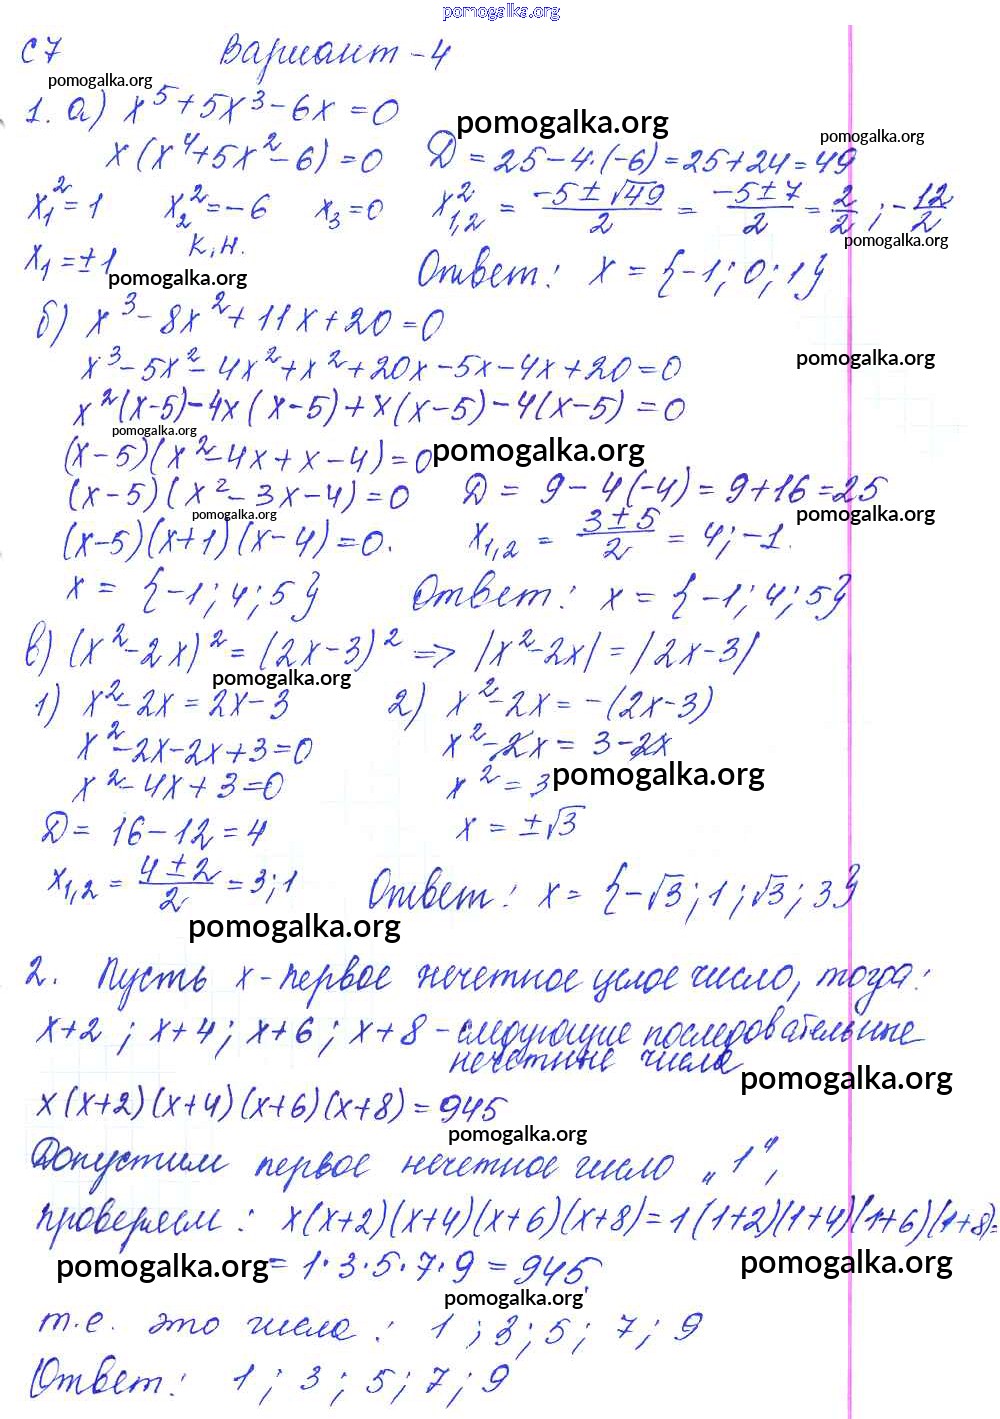 pomogalka.org
С7 Вариант-4
pomogalka.org
1. а) x⁵+5x³-6x=0
pomogalka.org pomogalka.org
x(x⁴+5x²-6)=0 Д=25-4·(-6)=25+24=49
x₁²=1 x₂²=-6 x₃=0 x²₁,₂ = (-5±√49)/2 = (-5±7)/2 = 2/2; -12/2
к.н. pomogalka.org
x₁=±1 pomogalka.org Ответ: x={-1;0;1}
б) x³-8x²+11x+20=0
x³-5x²-4x²+x²+20x-5x-4x+20=0 pomogalka.org
x²(x-5)-4x(x-5)+x(x-5)-4(x-5)=0
pomogalka.org
(x-5)(x²-4x+x-4)=0 pomogalka.org
(x-5)(x²-3x-4)=0 Д=9-4(-4)=9+16=25
pomogalka.org pomogalka.org
(x-5)(x+1)(x-4)=0. x₁,₂ = (3±5)/2 = 4;-1.
x={-1;4;5} Ответ: x={-1;4;5}
в) (x²-2x)²=(2x-3)² => |x²-2x|=|2x-3|
pomogalka.org
1) x²-2x=2x-3 2) x²-2x=-(2x-3)
x²-2x-2x+3=0 x²-2x=3-2x
x²-4x+3=0 x²=3 pomogalka.org
Д=16-12=4 x=±√3
x₁,₂ = (4±2)/2 = 3;1 Ответ: x={-√3;1;√3;3}
pomogalka.org
2. Пусть x-первое нечетное целое число, тогда:
x+2; x+4; x+6; x+8-следующие последовательные
нечетные числа
pomogalka.org
x(x+2)(x+4)(x+6)(x+8)=945
pomogalka.org
Допустим первое нечетное число „1",
проверяем: x(x+2)(x+4)(x+6)(x+8)=1(1+2)(1+4)(1+6)(1+8)=
pomogalka.org =1·3·5·7·9=945, pomogalka.org
pomogalka.org
т.е. это числа: 1;3;5;7;9
Ответ: 1;3;5;7;9